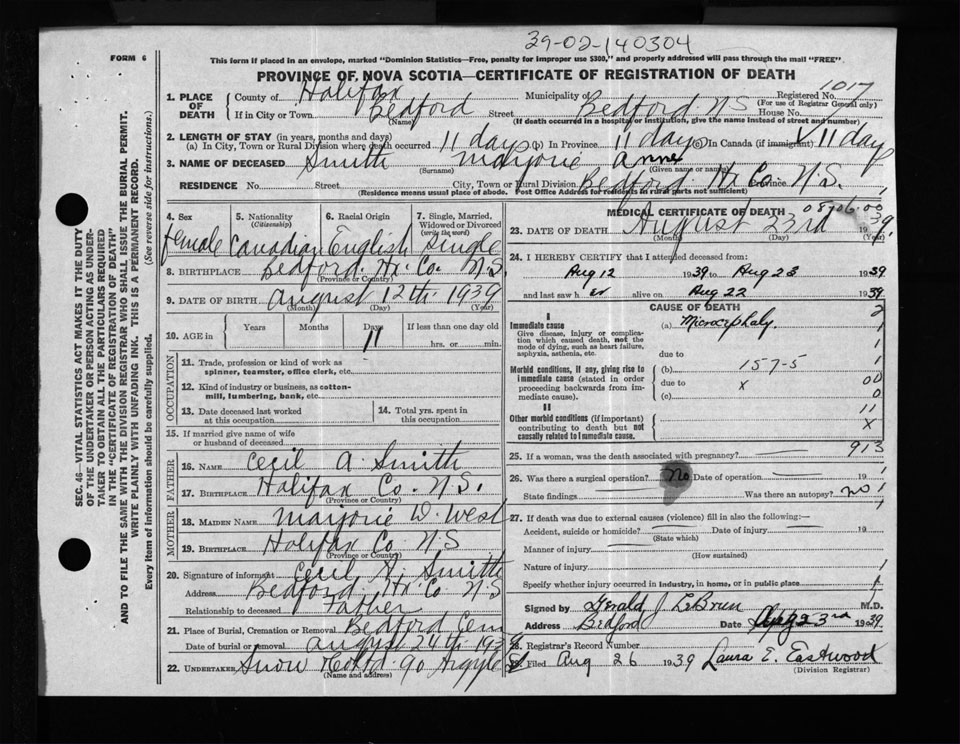 39-02-140304
FORM 6
This form if placed in an envelope, marked "Dominion Statistics—Free, penalty for improper use $300," and properly addressed will pass through the mail "FREE".
PROVINCE OF NOVA SCOTIA—CERTIFICATE OF REGISTRATION OF DEATH
1. PLACE OF DEATH
County of Halifax Municipality of Registered No. 1017
(For use of Registrar General only)
If in City or Town Bedford Street Bedford N S House No.
(Name) (If death occurred in a hospital or institution, give the name instead of street and number)
2. LENGTH OF STAY (in years, months and days)
(a) In City, Town or Rural Division where death occurred 11 days (b) In Province 11 days (c) In Canada (if immigrant) X 11 days
3. NAME OF DECEASED Smith Marjorie Anne
(Surname) (Given name or names)
RESIDENCE No. Street City, Town or Rural Division Bedford Hx Co Province N.S.
(Residence means usual place of abode. Post Office Address for residents in rural parts not sufficient)
4. Sex
female
5. Nationality (Citizenship)
Canadian
6. Racial Origin
English
7. Single, Married, Widowed or Divorced (write the word)
Single
8. BIRTHPLACE Bedford. Hx. Co. N.S.
(Province or Country)
9. DATE OF BIRTH August 12th 1939
(Month) (Day) (Year)
10. AGE in Years Months Days 11 If less than one day old
hrs. or min.
OCCUPATION
11. Trade, profession or kind of work as spinner, teamster, office clerk, etc.
12. Kind of industry or business, as cotton-mill, lumbering, bank, etc.
13. Date deceased last worked at this occupation
14. Total yrs. spent in this occupation
15. If married give name of wife or husband of deceased
FATHER
16. NAME Cecil A. Smith
17. BIRTHPLACE Halifax Co. N.S.
(Province or Country)
MOTHER
18. MAIDEN NAME Marjorie W. West
19. BIRTHPLACE Halifax Co N.S
(Province or Country)
20. Signature of informant Cecil A. Smith
Address Bedford, Hx. Co. N.S
Relationship to deceased Father
21. Place of Burial, Cremation or Removal Bedford Cem
Date of burial or removal August 24th 1939
22. UNDERTAKER Snow Co Ltd. 90 Argyle St
(Name and address)
MEDICAL CERTIFICATE OF DEATH 08706.00
23. DATE OF DEATH August 23rd 1939.
(Month) (Day) (Year)
24. I HEREBY CERTIFY that I attended deceased from:
Aug 12 1939 to Aug 23 1939
and last saw h er alive on Aug 22 1939
CAUSE OF DEATH
I
Immediate cause
Give disease, injury or complication which caused death, not the mode of dying, such as heart failure, asphyxia, asthenia, etc.
(a) Microcephaly.
due to
Morbid conditions, if any, giving rise to immediate cause (stated in order proceeding backwards from immediate cause).
(b) 157-5
due to x
(c)
II
Other morbid conditions (if important) contributing to death but not causally related to immediate cause.
2
1
1
1
00
0
11
X
25. If a woman, was the death associated with pregnancy? 913
26. Was there a surgical operation? No Date of operation 19
State findings Was there an autopsy? no
27. If death was due to external causes (violence) fill in also the following:—
Accident, suicide or homicide? Date of injury 19
(State which)
Manner of injury
(How sustained)
Nature of injury
Specify whether injury occurred in industry, in home, or in public place
Signed by Gerald J. LeBrun M.D.
Address Bedford Date Aug 23rd 1939
28. Registrar's Record Number
Filed Aug 26 1939 Laura E. Eastwood
(Division Registrar)
SEC. 46—VITAL STATISTICS ACT MAKES IT THE DUTY
OF THE UNDERTAKER OR PERSON ACTING AS UNDER-
TAKER TO OBTAIN ALL THE PARTICULARS REQUIRED
IN THE "CERTIFICATE OF REGISTRATION OF DEATH"
AND TO FILE THE SAME WITH THE DIVISION REGISTRAR WHO SHALL ISSUE THE BURIAL PERMIT.
WRITE PLAINLY WITH UNFADING INK. THIS IS A PERMANENT RECORD.
Every item of information should be carefully supplied. (See reverse side for instructions.)